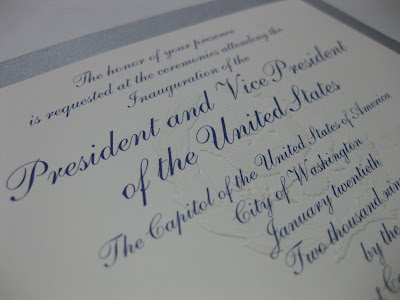 The honor of your presence
is requested at the ceremonies attending the
Inauguration of the
President and Vice President
of the United States
The Capitol of the United States of America
City of Washington
January twentieth
Two thousand nine
by the